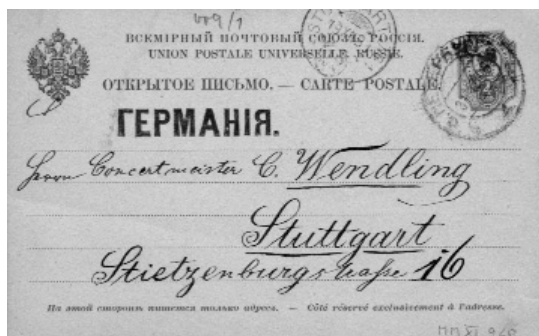 ВСЕМІРНЫЙ ПОЧТОВЫЙ СОЮЗЪ. РОССІЯ.
UNION POSTALE UNIVERSELLE. RUSSIE.
ОТКРЫТОЕ ПИСЬМО. — CARTE POSTALE.
ГЕРМАНІЯ.
Herrn Concertmeister C. Wendling
Stuttgart
Stietzenburgstraße 16
На этой сторонѣ пишется только адресъ. — Côté réservé exclusivement à l'adresse.